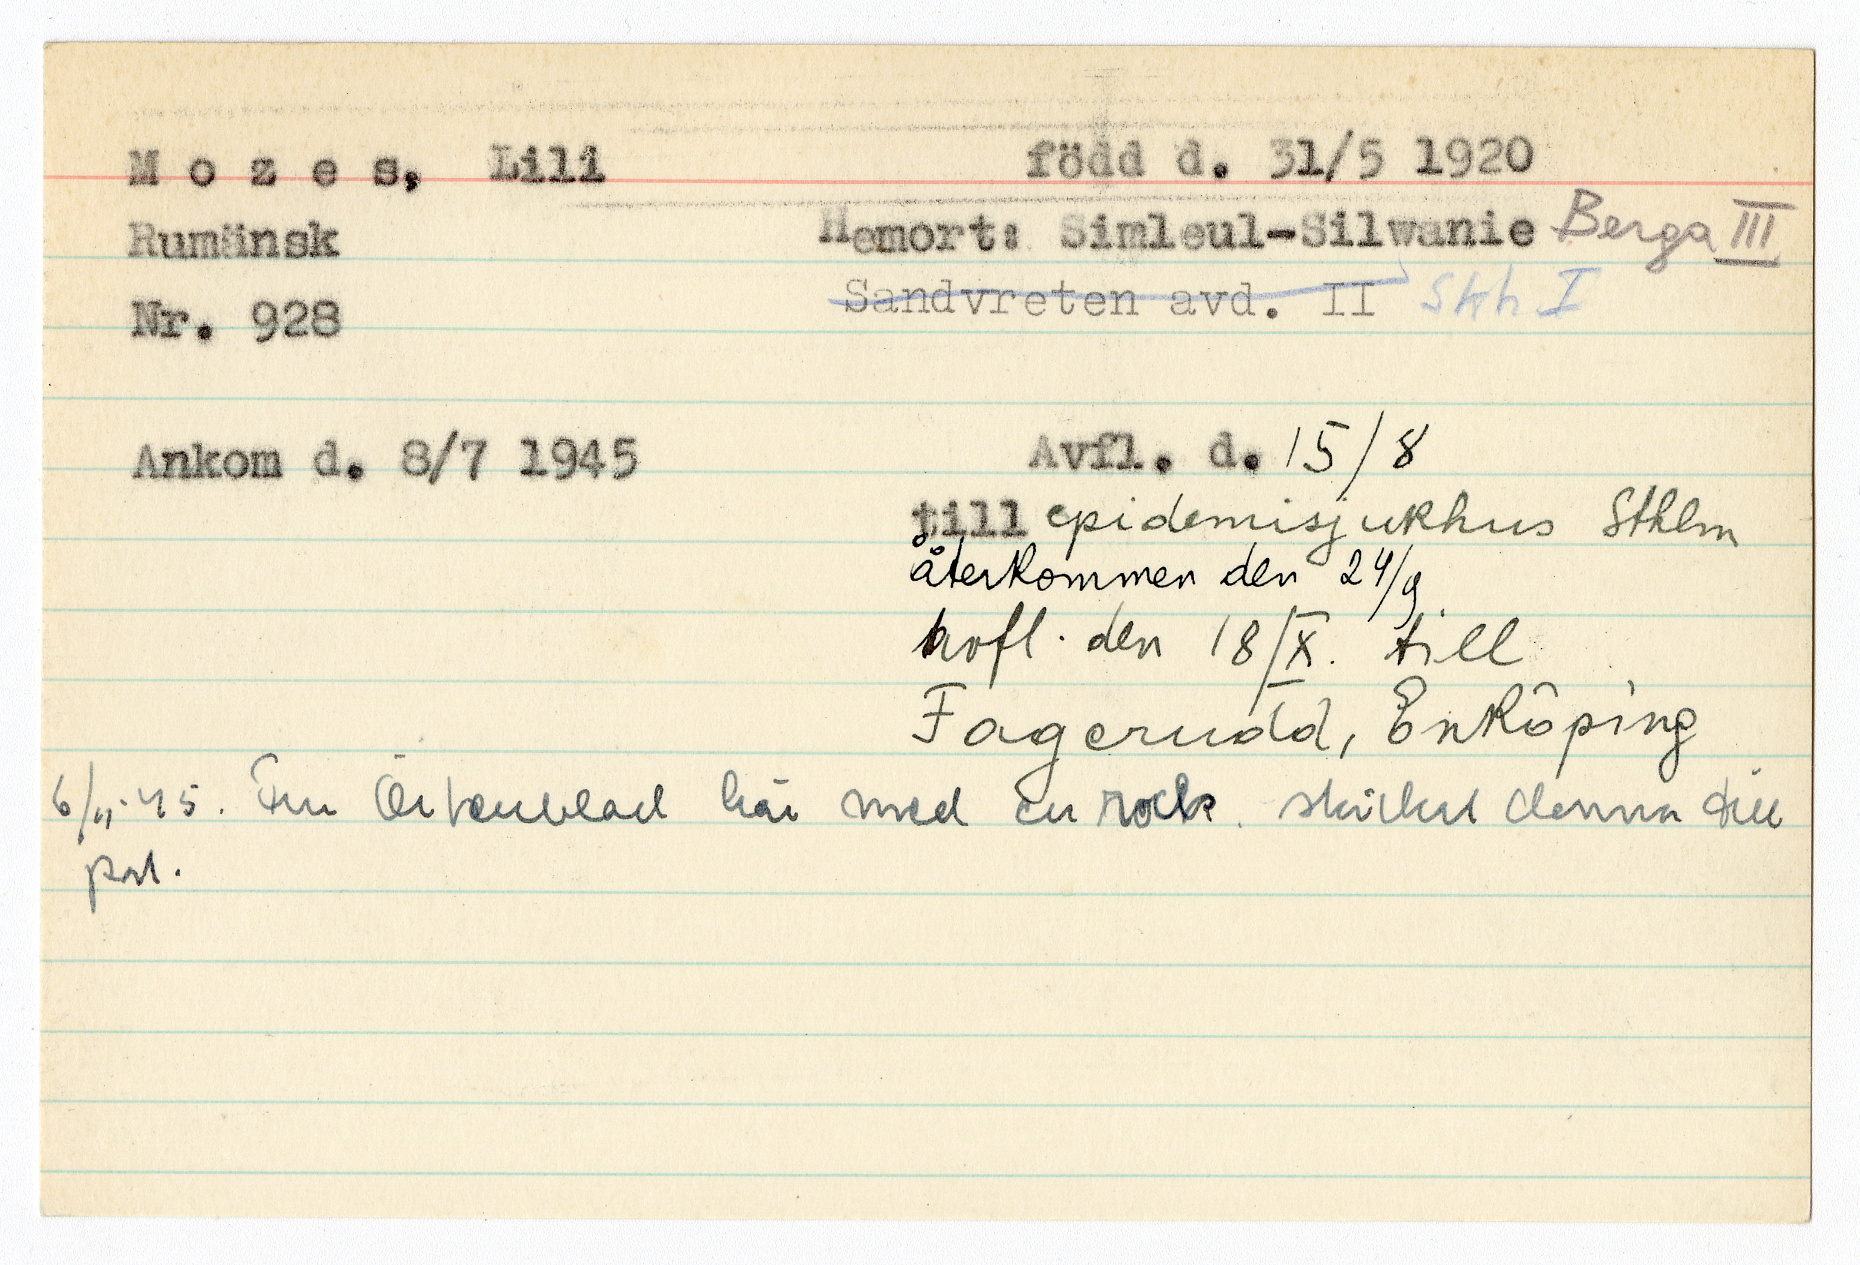 M o z e s, Lili född d. 31/5 1920
Rumänsk Hemort: Simleul-Silwanie Berga III
Sandvreten avd. II Skh I
Nr. 928
Ankom d. 8/7 1945 Avfl. d. 15/8
till epidemisjukhus Sthlm
återkommen den 24/9
Avfl. den 18/X. till
Fagerudd, Enköping
6/11-45. Fru här med en rock. skickat denna till